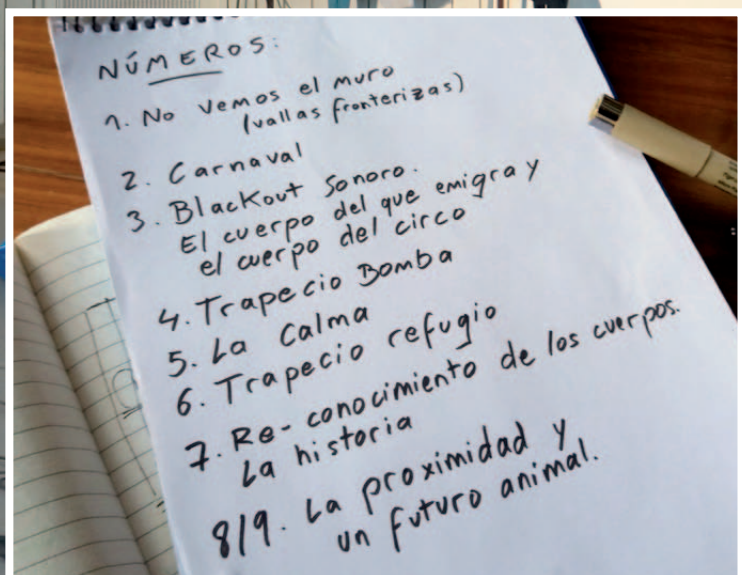 NÚMEROS:
1. No vemos el muro
(vallas fronterizas)
2. Carnaval
3. Blackout Sonoro.
El cuerpo del que emigra y
el cuerpo del circo
4. Trapecio Bomba
5. La Calma
6. Trapecio refugio
7. Re-conocimiento de los cuerpos.
La historia
8/9. La proximidad y
un futuro animal.